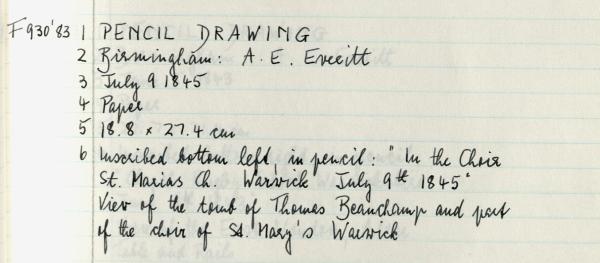 F930'83 1 PENCIL DRAWING
2 Birmingham: A. E. Everitt
3 July 9 1845
4 Paper
5 18.8 x 27.4 cm
6 Inscribed bottom left, in pencil: "In the Choir
St. Marias Ch. Warwick July 9th 1845"
View of the tomb of Thomas Beauchamp and part
of the choir of St. Mary's Warwick